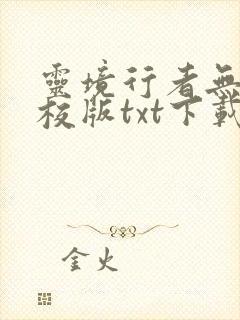 靈境行者無
校版txt下載
金火